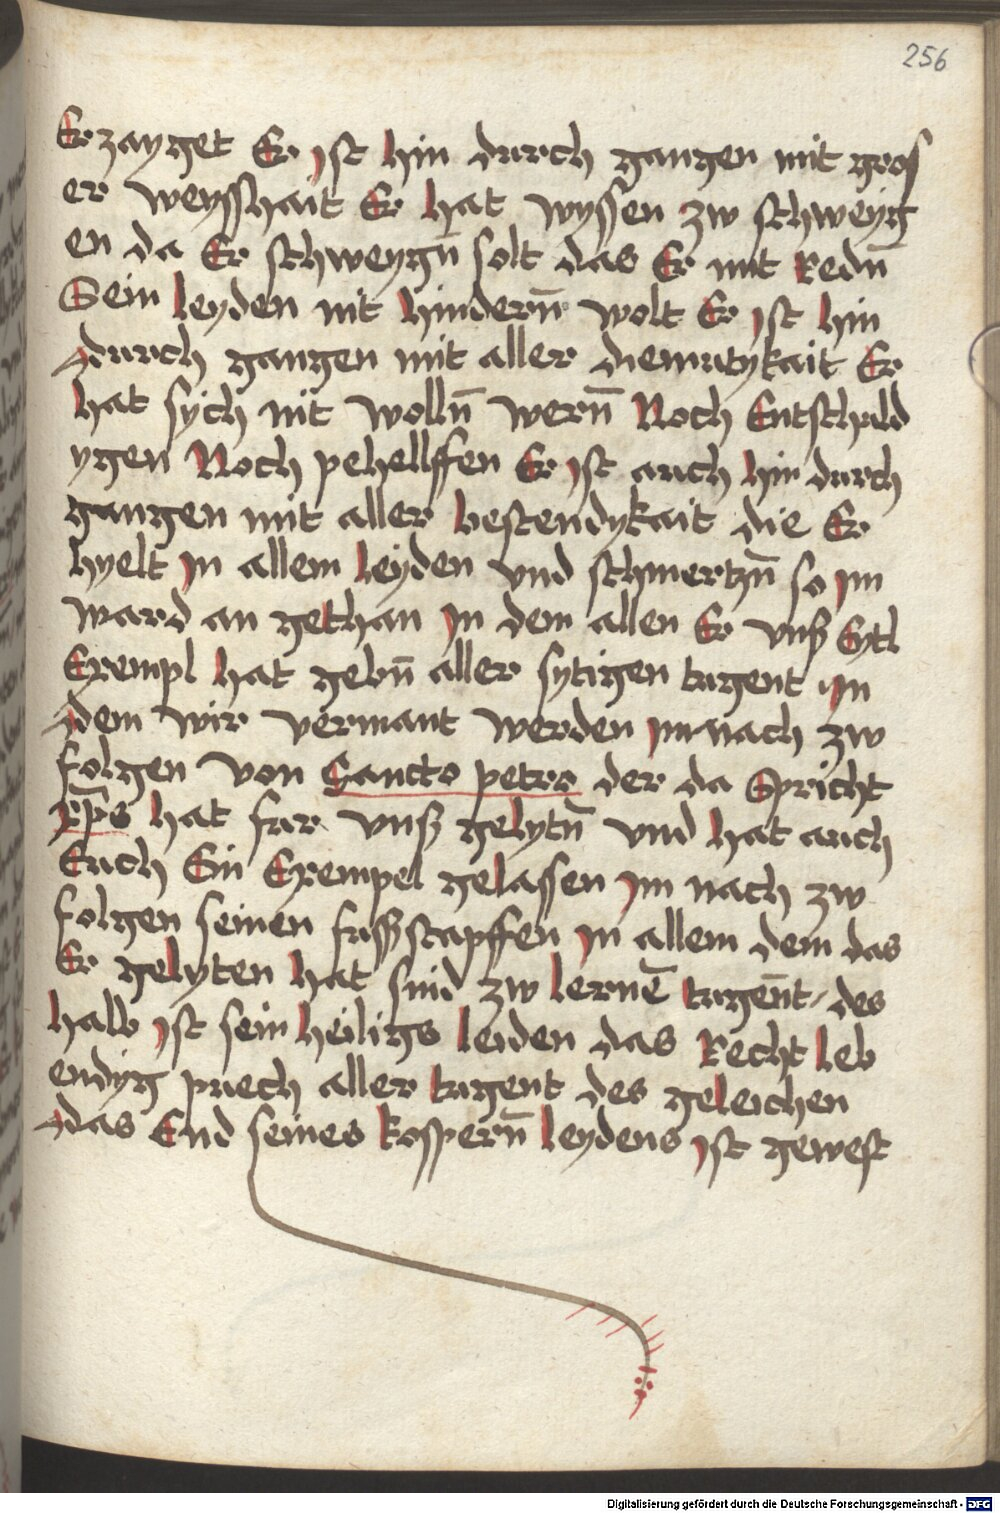 256
Er zayget Er ist hin durch gangen mit gros
er weysshait Er hat wyssen zw schweyg
en da Er schweygn̄ solt das Er mit Redn̄
Sein leyden nit hindern̄ wolt Er ist hin
durch gangen mit aller diemutykait Er
hat sych nit wolln̄ wern̄ Noch Entschuld
ygen Noch pehellffen Er ist auch hin durch
gangen mit aller bestendykait die Er
hyelt in allem leyden vnd schmertzn̄ so im
ward an gethan in dem allen Er vnß Eytl
Exempl hat gebn̄ aller sytigen tugent in
dem wir vermant werden im nach zw
folgen von Sancto petro der da Spricht
xp̄s hat fur vnß gelytn̄ vnd hat auch
Euch Ein Exempel gelassen im nach zw
folgen seinen fußstapffen in allem dem das
Er gelyten hat sind zw lernē tugen̄t / des
halb ist sein heiligs leiden das Recht leb
endyg puech aller tugent des geleichen
das End seines kospern̄ leydens ist gewest
Digitalisierung gefördert durch die Deutsche Forschungsgemeinschaft - DFG